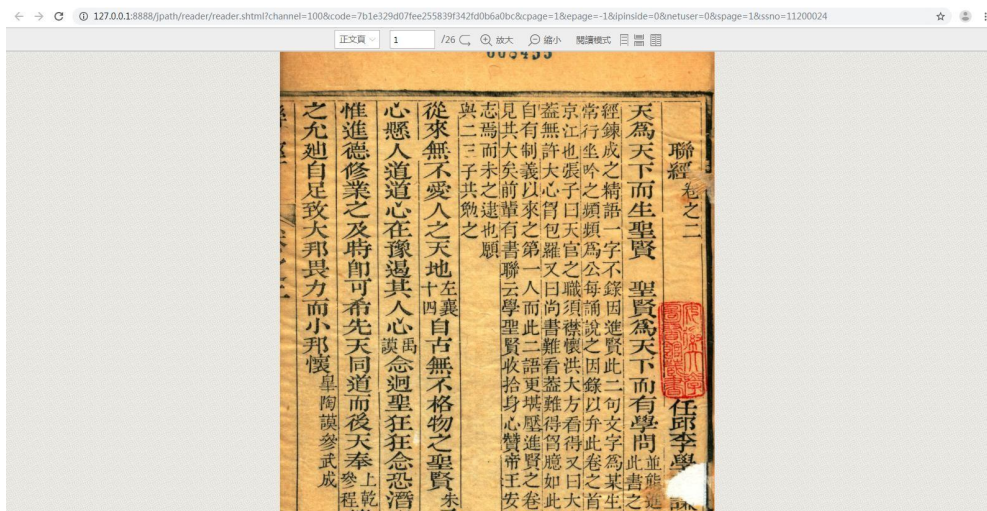 127.0.0.1:8888/jpath/reader/reader.shtml?channel=100&code=7b1e329d07fee255839f342fd0b6a0bc&cpage=1&epage=-1&ipinside=0&netuser=0&spage=1&ssno=11200024
正文頁 1 /26 放大 縮小 閱讀模式
聯經卷之二 任邱李學
天爲天下而生聖賢 聖賢爲天下而有學問 並熊進此書之
經鍊成之精語一字不錄因進賢此二句文字爲某生
常行坐吟之頻頻爲公每誦說之因錄以弁此卷之首
京江也張子曰天官之職須襟懷洪大方看得又曰大
葢無許大心胷包羅又曰尚書難看葢難得胷臆如此
自有制義以來之第一人而此二語更堪壓進賢之卷
見其大矣前輩有書聯云學聖賢收拾身心贊帝王安
志焉而未之逮也願
與二三子共勉之
從來無不愛人之天地左襄十四自古無不格物之聖賢朱
心懸人道道心在豫遏其人心禹謨念迥聖狂狂念恐潛
惟進德修業之及時卽可希先天同道而後天奉上乾參程
之允廸自足致大邦畏力而小邦懷皐陶謨參武成